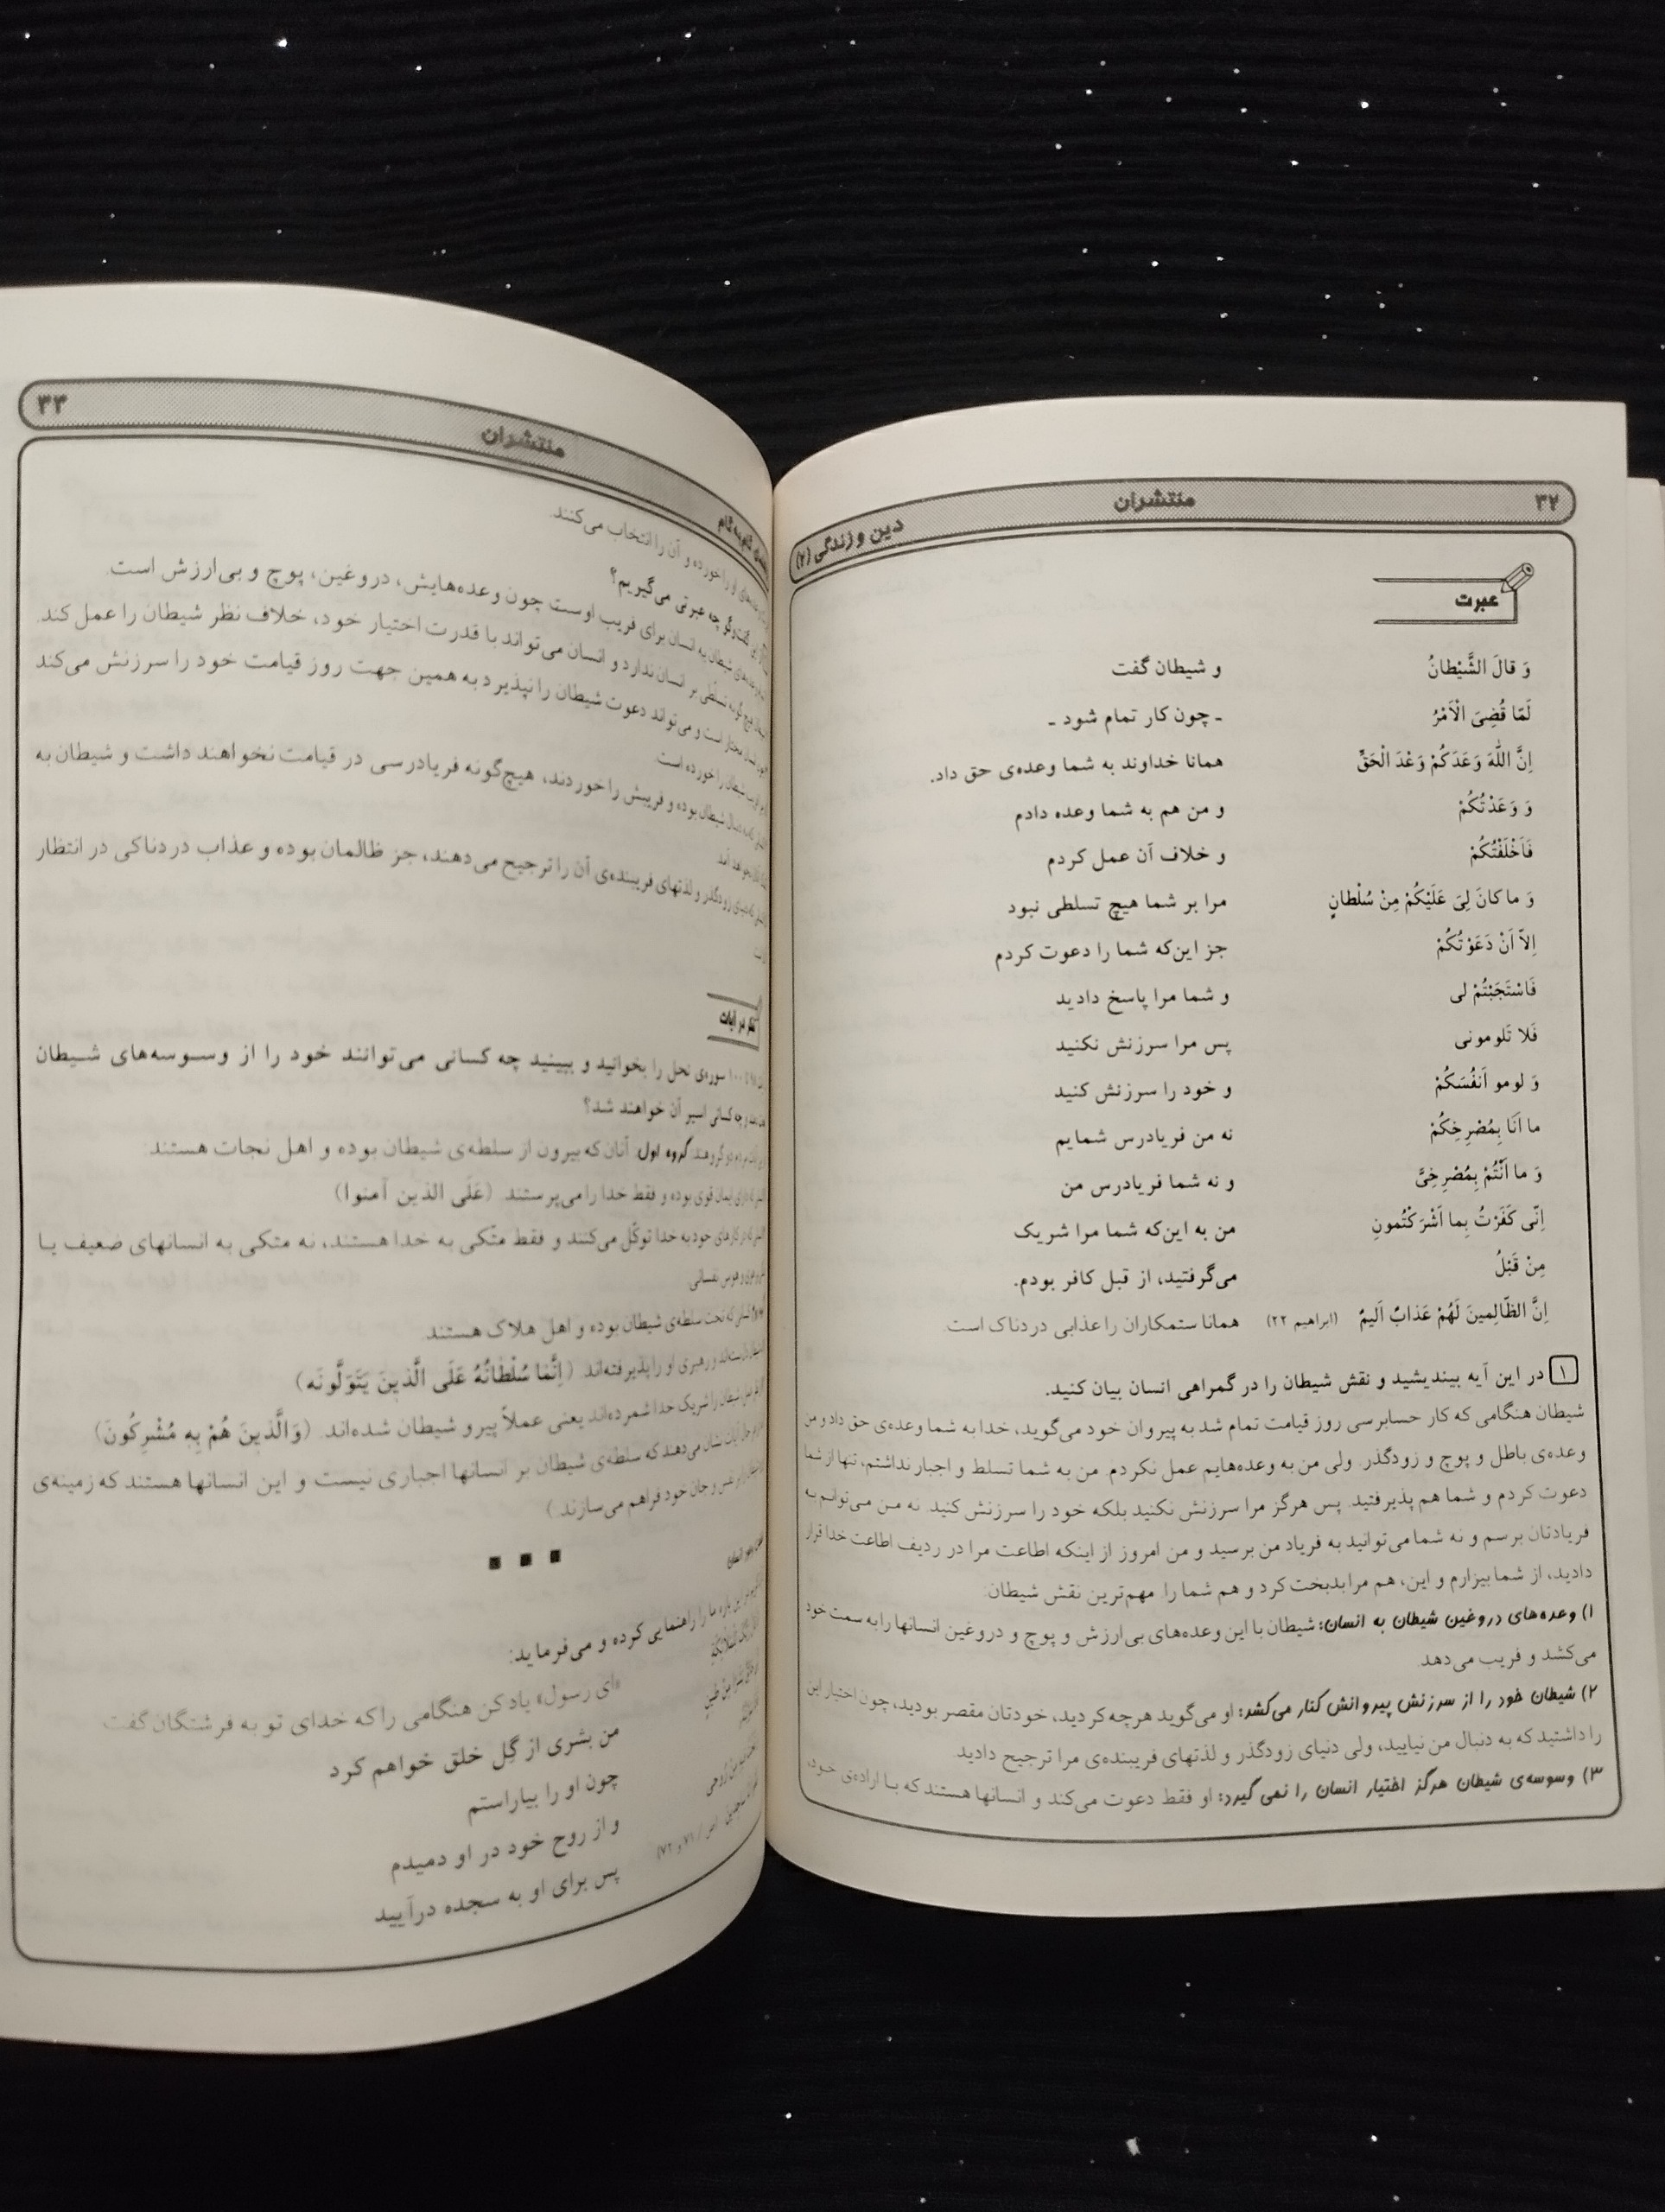 ۳۲
منتشران
دین و زندگی (۲)
عبرت
وَ قالَ الشَّیْطانُ
و شیطان گفت
لَمّا قُضِیَ الْاَمْرُ
ـ چون کار تمام شود ـ
اِنَّ اللّٰهَ وَعَدَکُمْ وَعْدَ الْحَقِّ
همانا خداوند به شما وعده‌ی حق داد.
وَ وَعَدْتُکُمْ
و من هم به شما وعده دادم
فَاَخْلَفْتُکُمْ
و خلاف آن عمل کردم
وَ ما کانَ لِیَ عَلَیْکُمْ مِنْ سُلْطانٍ
مرا بر شما هیچ تسلطی نبود
اِلاّ اَنْ دَعَوْتُکُمْ
جز این‌که شما را دعوت کردم
فَاسْتَجَبْتُمْ لی
و شما مرا پاسخ دادید
فَلا تَلومونی
پس مرا سرزنش نکنید
وَ لومو اَنفُسَکُمْ
و خود را سرزنش کنید
ما اَنَا بِمُصْرِخِکُمْ
نه من فریادرس شمایم
وَ ما اَنْتُمْ بِمُصْرِخِیَّ
و نه شما فریادرس من
اِنّی کَفَرْتُ بِما اَشْرَکْتُمونِ
من به این‌که شما مرا شریک
مِنْ قَبْلُ
می‌گرفتید، از قبل کافر بودم.
اِنَّ الظّالِمینَ لَهُمْ عَذابٌ اَلیمٌ (ابراهیم ۲۲)
همانا ستمکاران را عذابی دردناک است.
۱ در این آیه بیندیشید و نقش شیطان را در گمراهی انسان بیان کنید.
شیطان هنگامی که کار حسابرسی روز قیامت تمام شد به پیروان خود می‌گوید، خدا به شما وعده‌ی حق داد و من
وعده‌ی باطل و پوچ و زودگذر. ولی من به وعده‌هایم عمل نکردم. من به شما تسلط و اجبار نداشتم، تنها از شما
دعوت کردم و شما هم پذیرفتید. پس هرگز مرا سرزنش نکنید بلکه خود را سرزنش کنید. نه من می‌توانم به
فریادتان برسم و نه شما می‌توانید به فریاد من برسید و من امروز از اینکه اطاعت مرا در ردیف اطاعت خدا قرار
دادید، از شما بیزارم و این، هم مرا بدبخت کرد و هم شما را. مهم‌ترین نقش شیطان:
۱) وعده‌های دروغین شیطان به انسان: شیطان با این وعده‌های بی‌ارزش و پوچ و دروغین انسانها را به سمت خود
می‌کشد و فریب می‌دهد.
۲) شیطان خود را از سرزنش پیروانش کنار می‌کشد: او می‌گوید هرچه کردید، خودتان مقصر بودید، چون اختیار این
را داشتید که به دنبال من نیایید، ولی دنیای زودگذر و لذتهای فریبنده‌ی مرا ترجیح دادید.
۳) وسوسه‌ی شیطان هرگز اختیار انسان را نمی گیرد: او فقط دعوت می‌کند و انسانها هستند که با اراده‌ی خود،
منتشران
۳۳
را خورده و آن را انتخاب می‌کنند.
چه عبرتی می‌گیریم؟
شیطان به انسان برای فریب اوست چون وعده‌هایش، دروغین، پوچ و بی‌ارزش است.
تسلّطی بر انسان ندارد و انسان می‌تواند با قدرت اختیار خود، خلاف نظر شیطان را عمل کند.
مختار است و می‌تواند دعوت شیطان را نپذیرد به همین جهت روز قیامت خود را سرزنش می‌کند
شیطان را خورده است.
شیطان بوده و فریبش را خوردند، هیچ‌گونه فریادرسی در قیامت نخواهند داشت و شیطان به
نخواهد آمد.
زودگذر و لذتهای فریبنده‌ی آن را ترجیح می‌دهند، جز ظالمان بوده و عذاب دردناکی در انتظار
تفکر در آیات
۱۰۰ سوره‌ی نحل را بخوانید و ببینید چه کسانی می‌توانند خود را از وسوسه‌های شیطان
و چه کسانی اسیر آن خواهند شد؟
گروه اول: آنان که بیرون از سلطه‌ی شیطان بوده و اهل نجات هستند:
ایمان قوی بوده و فقط خدا را می‌پرستند. (عَلَی الذین آمنوا)
در کارهای خود به خدا توکّل می‌کنند و فقط متّکی به خدا هستند، نه متکی به انسانهای ضعیف یا
و هوس نفسانی.
که تحت سلطه‌ی شیطان بوده و اهل هلاک هستند.
و رهبری او را پذیرفته‌اند. (اِنَّما سُلْطانُهُ عَلَی الَّذینَ یَتَوَلَّونَه)
شیطان را شریک خدا شمرده‌اند یعنی عملاً پیرو شیطان شده‌اند. (وَالَّذینَ هُمْ بِهِ مُشْرِکُونَ)
آیات نشان می‌دهند که سلطه‌ی شیطان بر انسانها اجباری نیست و این انسانها هستند که زمینه‌ی
و جان خود فراهم می‌سازند.)
ما را راهنمایی کرده و می‌فرماید:
«ای رسول» یاد کن هنگامی را که خدای تو به فرشتگان گفت
من بشری از گِل خلق خواهم کرد
چون او را بیاراستم
و از روح خود در او دمیدم
پس برای او به سجده درآیید